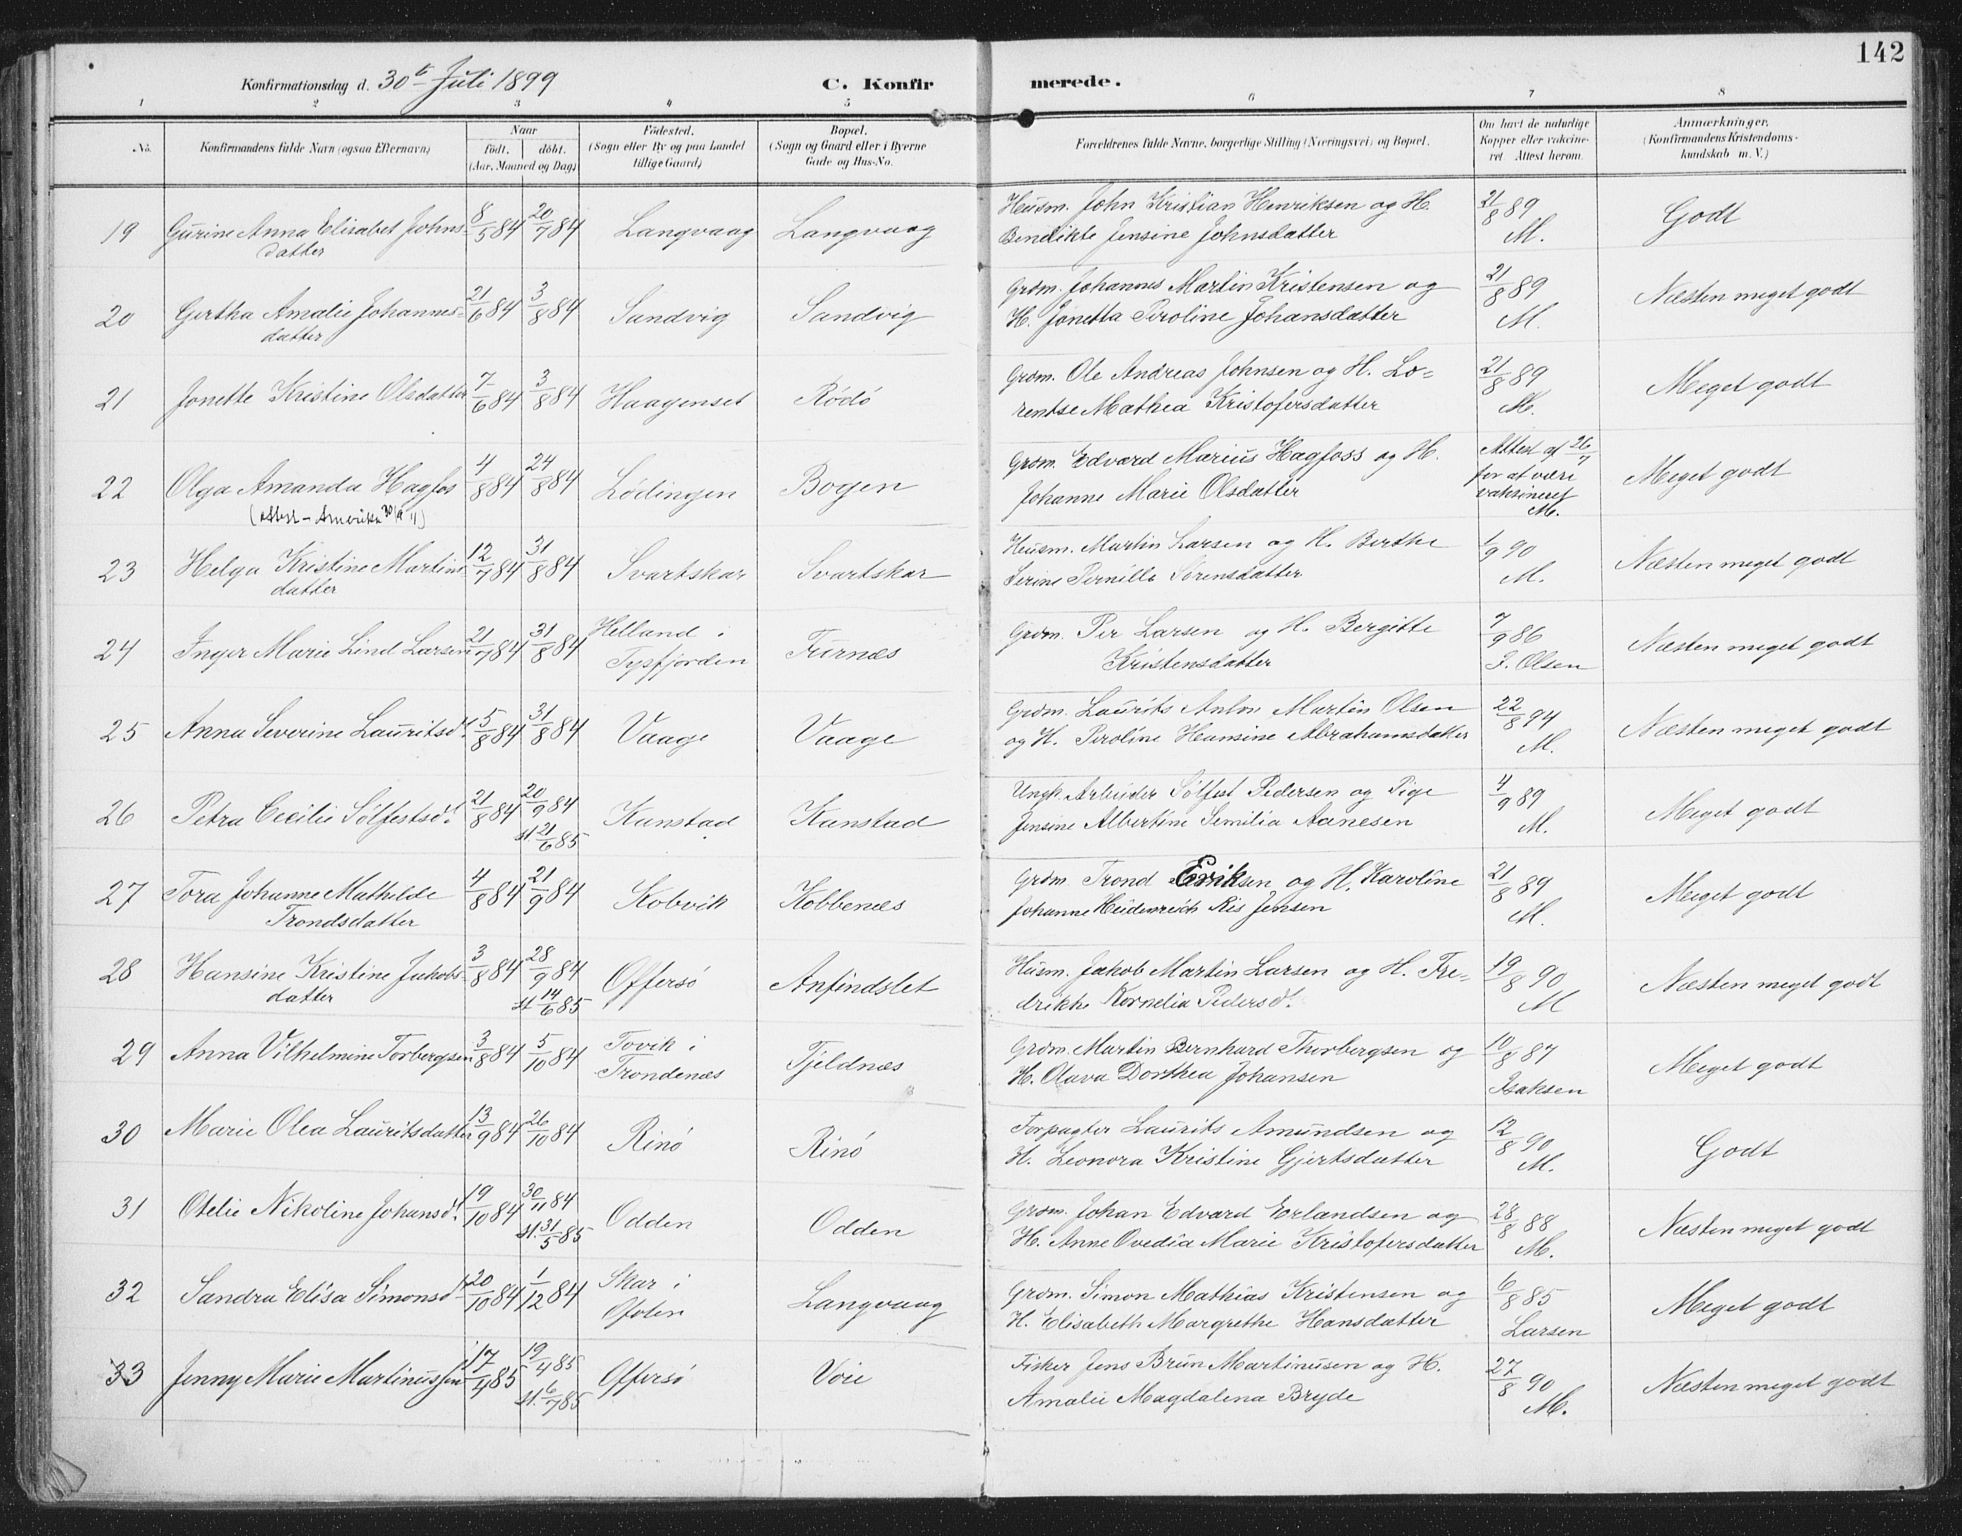 142
Konfirmationsdag d. 30te Juli 1899
C. Konfirmerede.
1 2 3 4 5 6 7 8
No. Konfirmandens fulde Navn (ogsaa Efternavn) Naar født. døbt. (Aar, Maaned og Dag) Fødested. (Sogn eller By og paa Landet tillige Gaard) Bopæl. (Sogn og Gaard eller i Byerne Gade og Hus-No. Forældrenes fulde Navne, borgerlige Stilling (Næringsvei) og Bopæl. Om havt de naturlige Kopper eller vakcineret. Attest herom. Anmærkninger. (Konfirmandens Kristendomskundskab m. V.)
19 Gurine Anna Elisabet Johnsdatter 8/5 84 20/7 84 Langvaag Langvaag Husm. John Kristian Henriksen og H. Bendikte Jensine Johnsdatter 21/8 89 M. Godt
20 Gertha Amalie Johannesdatter 21/6 84 3/8 84 Sandvig Sandvig Grdm. Johannes Martin Kristensen og H. Jonetta Peroline Johansdatter 21/8 89 M. Næsten meget godt
21 Jonette Kristine Olsdatter 7/6 84 3/8 84 Haagenset Rödö Grdm. Ole Andreas Johnsen og H. Lorentse Mathea Kristofersdatter 21/8 89 M. Meget godt
22 Olga Amanda Hagfos 4/8 84 24/8 84 Lødingen Bogen Grdm. Edvard Marius Hagfoss og H. Johanne Marie Olsdatter Attest af 26/7 for at være vaksineret M. Meget godt
(Attest - Amerika 30/9 11)
23 Helga Kristine Martinsdatter 12/7 84 31/8 84 Svartskar Svartskar Husm. Martin Larsen og H. Berthe Serine Pernille Sörensdatter 1/9 90 M. Næsten meget godt
24 Inger Marie Lind Larsen 21/7 84 31/8 84 Helland i Tysfjorden Furnæs Grdm. Per Larsen og H. Bergitte Kristensdatter 7/9 86 S. Olsen Næsten meget godt
25 Anna Severine Lauritsd. 5/8 84 31/8 84 Vaage Vaage Grdm. Laurits Anton Martin Olsen og H. Peroline Hansine Abrahamsdatter 22/8 94 M. Næsten meget godt
26 Petra Cecilie Sölfestsd. 21/8 84 20/9 84 st. 21/6 85 Kanstad Kanstad Ungk. Arbeider Sölfest Pedersen og Pige Jensine Albertine Semilia Aanesen 4/9 89 M. Meget godt
27 Tora Johanne Mathilde Trondsdatter 4/8 84 21/9 84 Kobvik Kobbenæs Grdm. Trond Eriksen og H. Karoline Johanne Heidenreich Ris Jensen 21/8 89 M. Meget godt
28 Hansine Kristine Jakobsdatter 3/8 84 28/9 84 st 14/6 85 Offersö Anfindslet Husm. Jakob Martin Larsen og H. Fredrikke Kornelia Pedersd. 19/8 90 M Næsten meget godt
29 Anna Vilhelmine Torbergsen 3/8 84 5/10 84 Tovik i Trondenæs Tjeldnæs Grdm. Martin Bernhard Thorbergsen og H. Olava Dorthea Johansen 10/8 87 Isaksen Meget godt
30 Marie Olea Lauritsdatter 13/9 84 26/10 84 Rinö Rinö Forpagter Laurits Amundsen og H. Leonora Kristine Gjertsdatter 12/8 90 M. Godt
31 Otelie Nikoline Johansd. 19/10 84 30/11 84 st. 31/5 85 Odden Odden Grdm. Johan Edvard Erlandsen og H. Anne Ovedia Marie Kristofersdatter 28/8 88 M. Næsten meget godt
32 Sandra Elisa Simonsd. 20/10 84 1/12 84 Skar i Ofoten Langvaag Grdm. Simon Mathias Kristensen og H. Elisabeth Margrethe Hansdatter 6/8 85 Larsen Meget godt
33 Jenny Marie Martinussen 17/4 85 19/4 85 st. 6/7 85 Offersö Voie Fisker Jens Brun Martinusen og H. Amalie Magdalena Bryde 27/8 90 M. Næsten meget godt